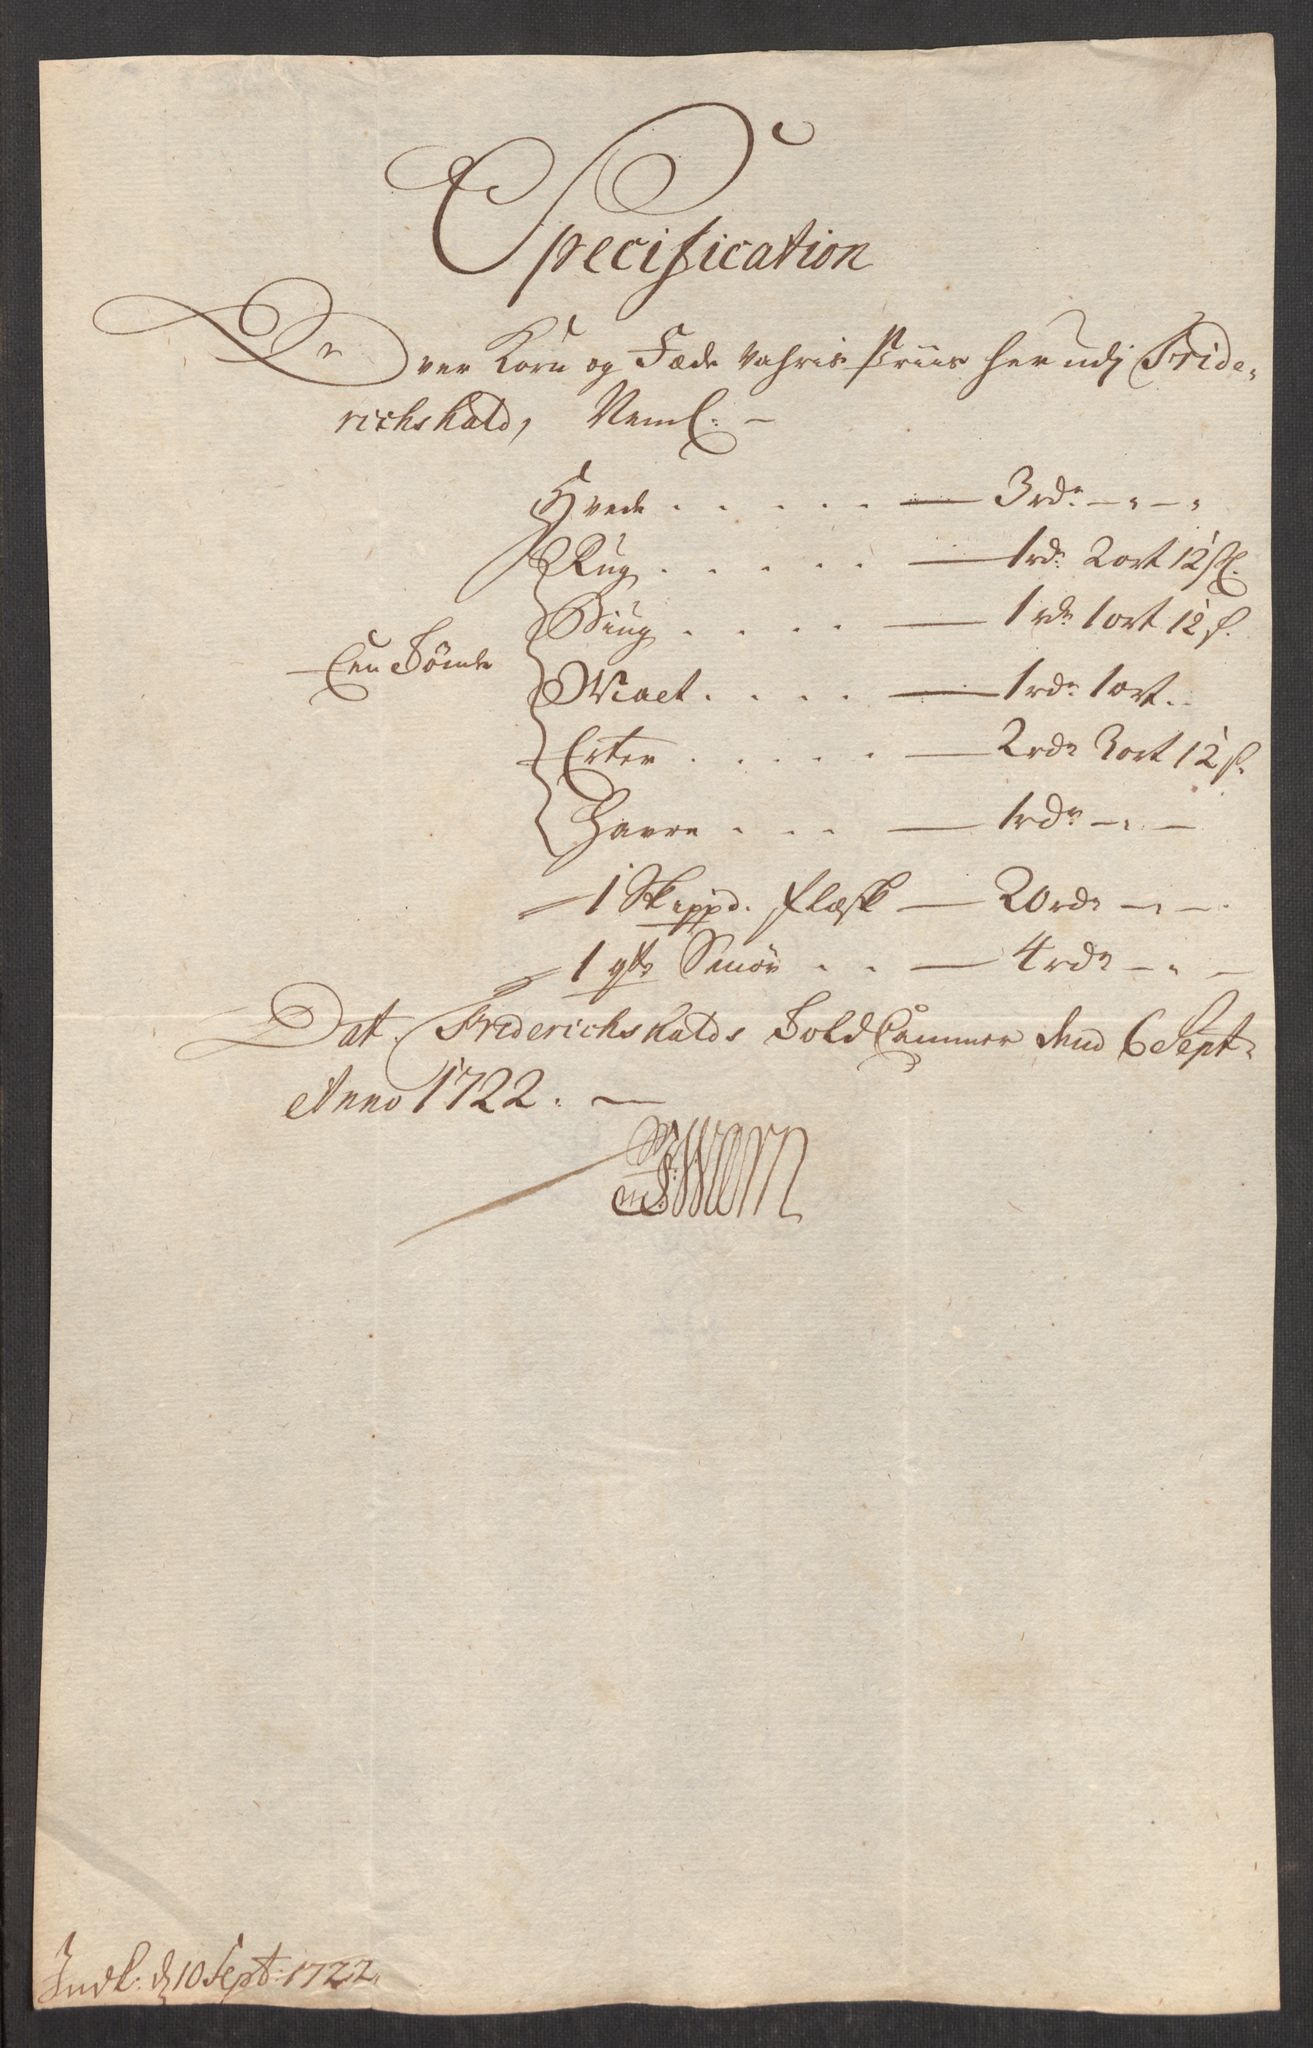 Specification
Over Korn og Fæde vahris Priis her udj Fride-
richshald, Neml: -
Hvede . . . . . — 3 rdr - " - "
Rug . . . . . — 1 rdr 2 ort 12 sk.
Biug . . . . — 1 rdr 1 ort 12 s.
Een Tønde
Malt . . . . — 1 rdr 1 ort -
Erter . . . . . — 2 rdr 3 ort 12 s.
Havre . . . — 1 rdr - " -
1 Skippd. Flæsk — 20 rdr - " -
1 Smör . . — 4 rdr - " -
Dat. Friderichshalds Told Cammer dend 6 Sept:
Anno 1722. —
Indl: d 10 Sept: 1722.